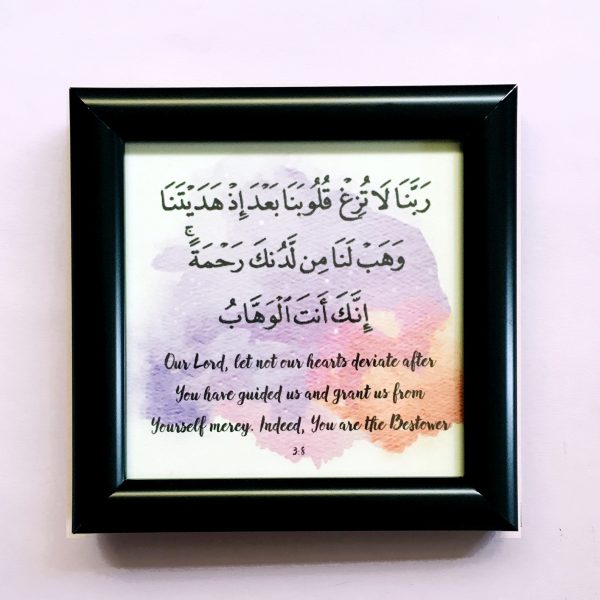 رَبَّنَا لَا تُزِغْ قُلُوبَنَا بَعْدَ إِذْ هَدَيْتَنَا
وَهَبْ لَنَا مِن لَّدُنكَ رَحْمَةً ۚ
إِنَّكَ أَنتَ ٱلْوَهَّابُ
Our Lord, let not our hearts deviate after
You have guided us and grant us from
Yourself mercy. Indeed, You are the Bestower
3:8